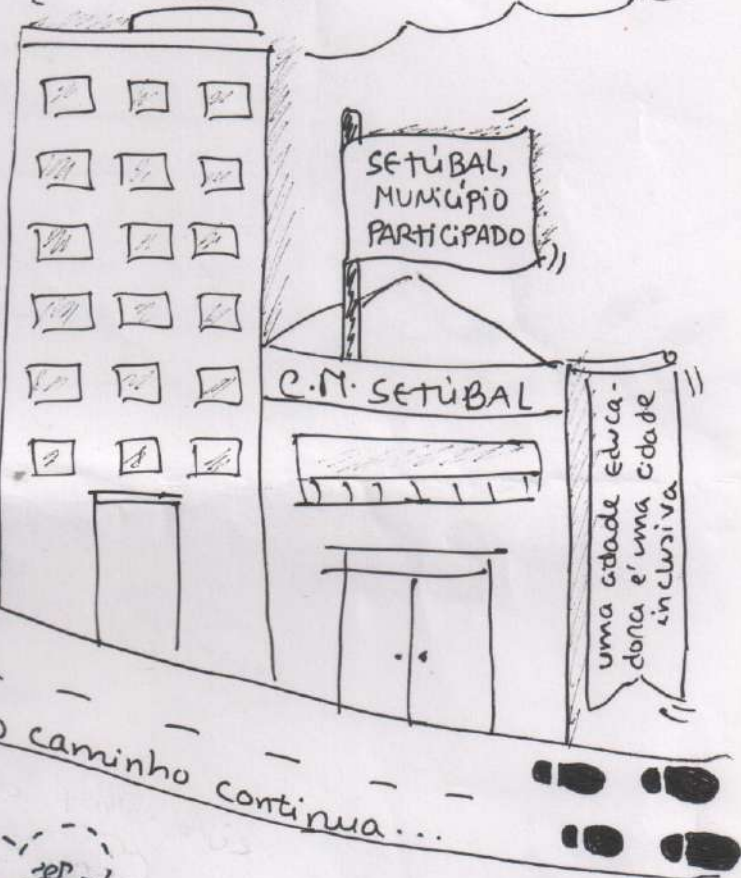 SETÚBAL,
MUNICÍPIO
PARTICIPADO
C.M. SETÚBAL
uma cidade educa-
dora é uma cidade
inclusiva
o caminho continua...
ser